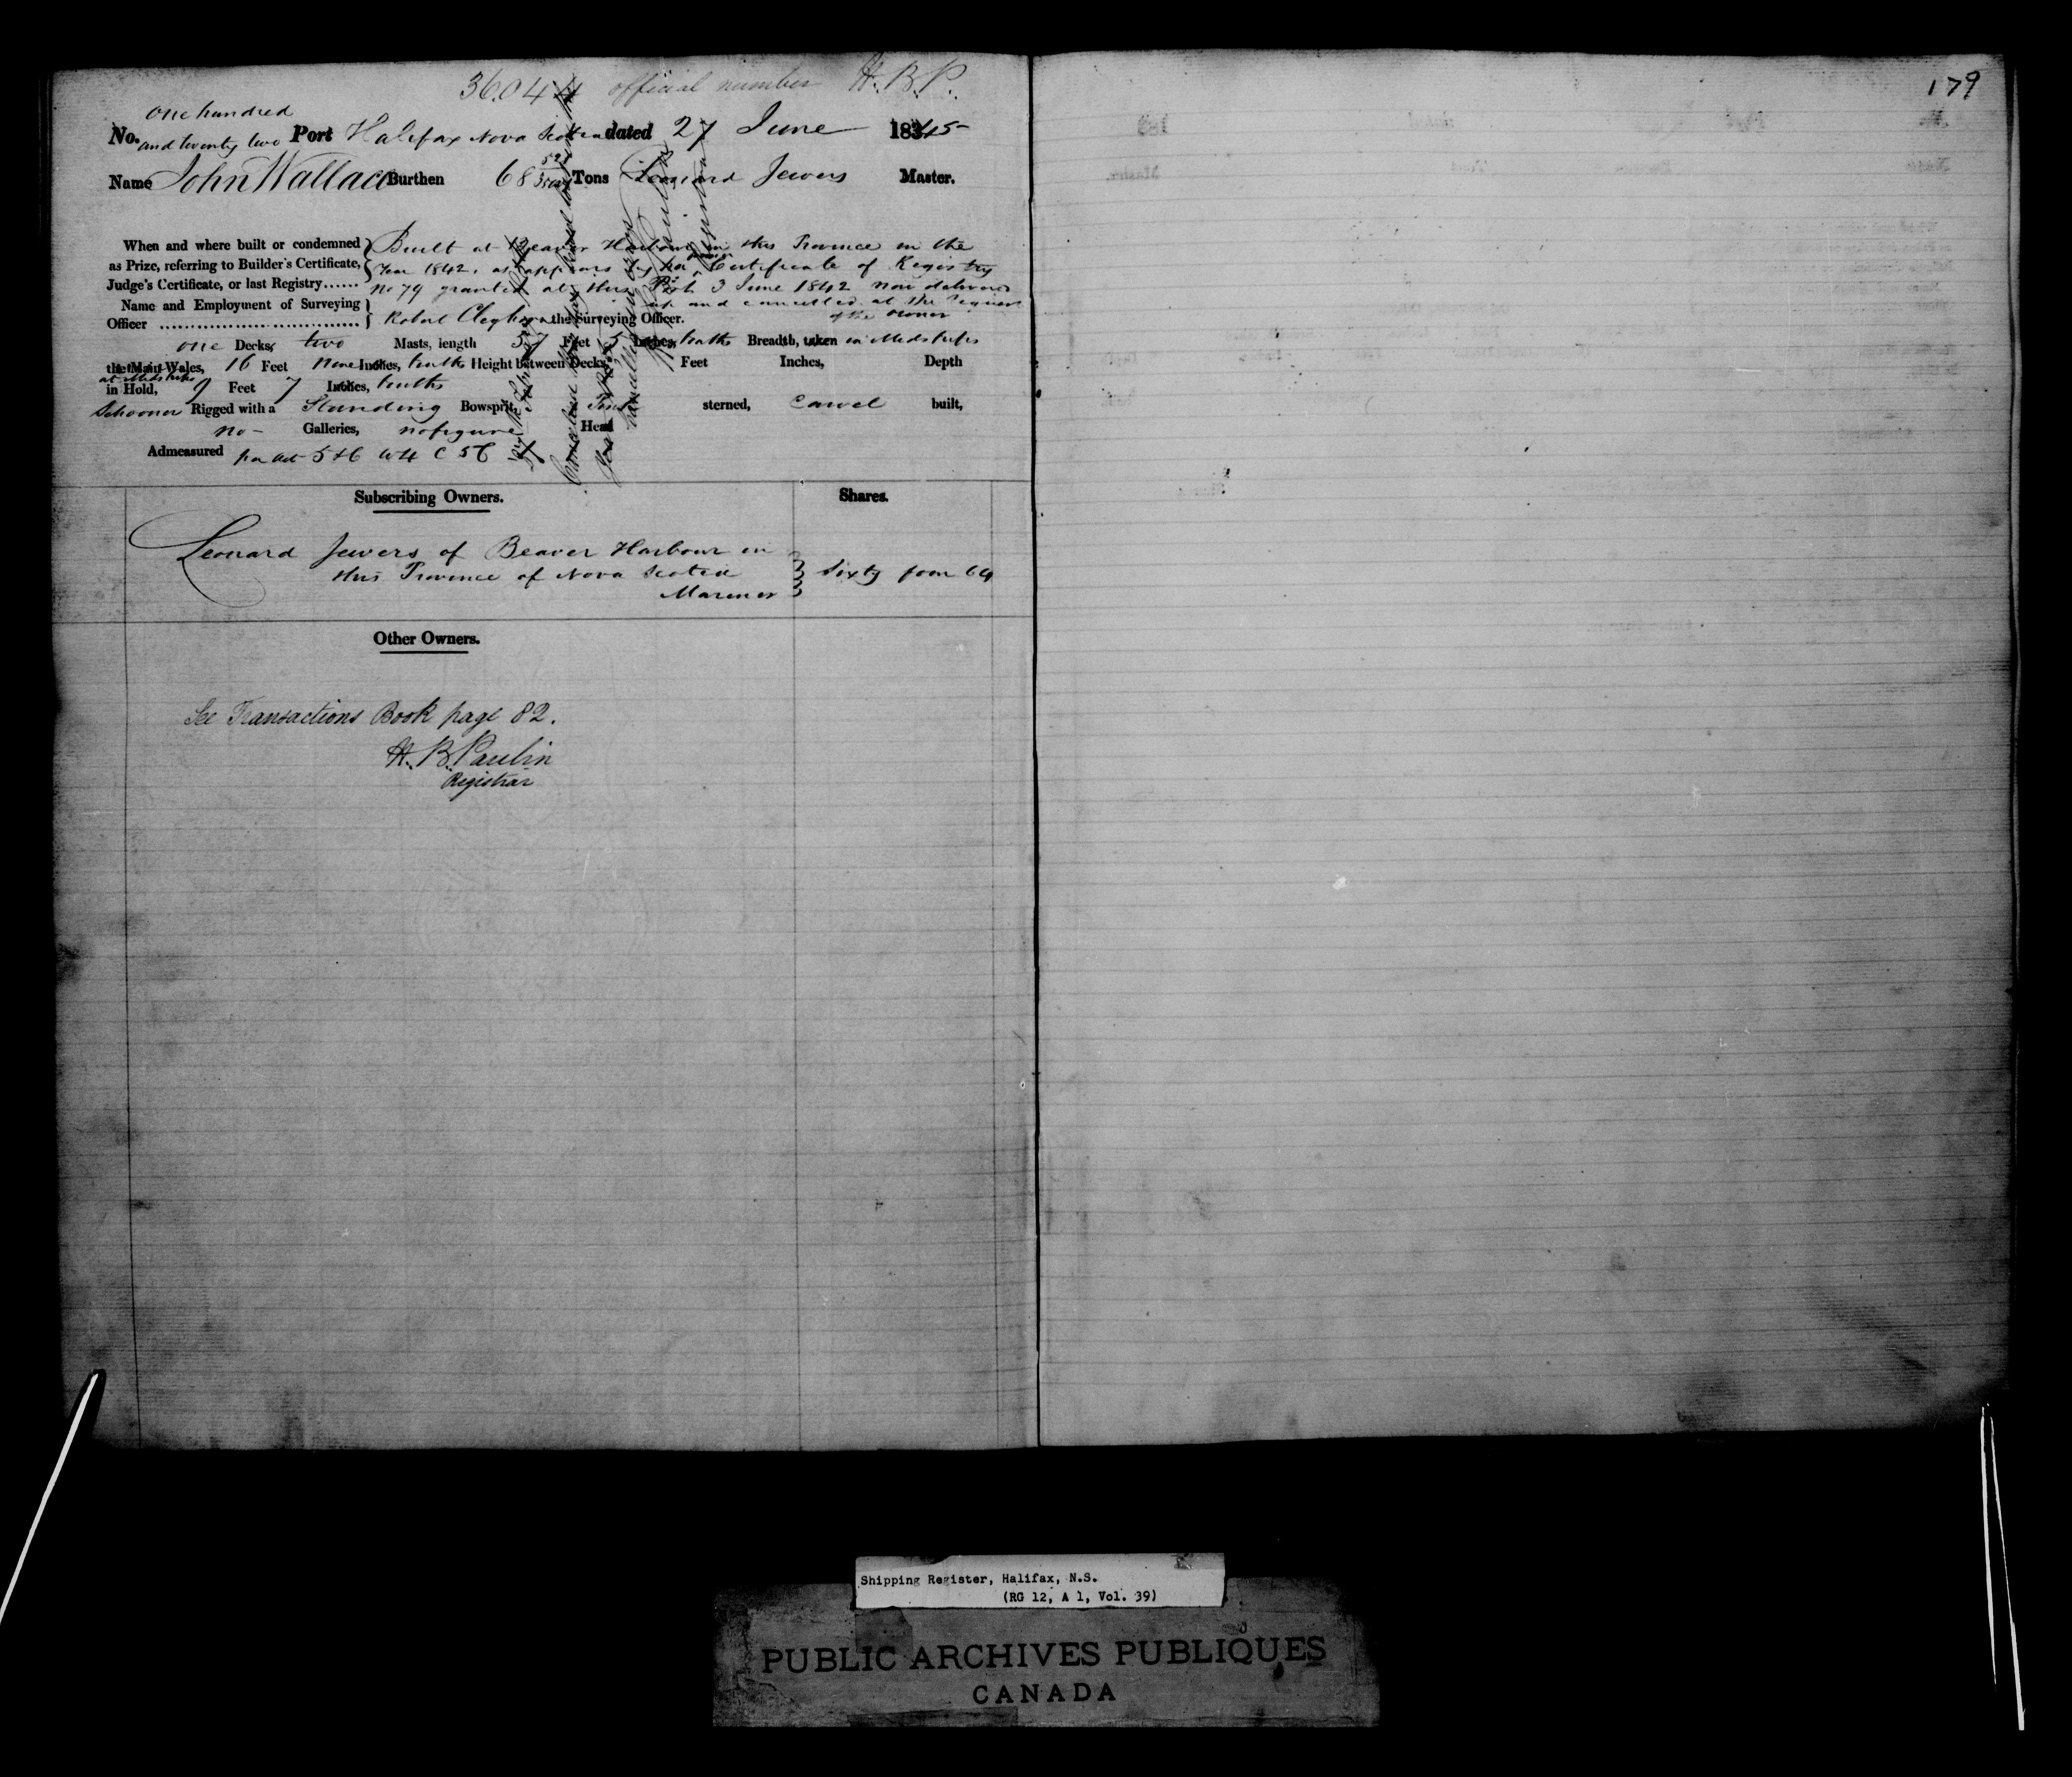 36.044 official number H.B.P.
179
one hundred
No. and twenty two Port Halifax Nova Scotia dated 27 June 1845
Name John Wallace Burthen 68 Tons Leonard Jewers Master.
When and where built or condemned Built at Beaver Harbour in this Province in the
as Prize, referring to Builder's Certificate, Year 1842, as appears by her former Certificate of Registry
Judge's Certificate, or last Registry...... No 79 granted at this Port 3 June 1842 now delivered
up and cancelled at the request
of the owner
Name and Employment of Surveying
Officer .................................... Robert the Surveying Officer.
one Decks, two Masts, length 57 Feet 5 Inches, tenths Breadth, taken in Midships
the Main Wales, 16 Feet none Inches, tenths Height between Decks Feet Inches, Depth
at Midships
in Hold, 9 Feet 7 Inches, tenths
Schooner Rigged with a Standing Bowsprit, sterned, Carvel built,
no Galleries, no figure Head
Admeasured per Act 5 & 6 W 4 C 56
Subscribing Owners.
Shares.
Leonard Jewers of Beaver Harbour in
this Province of Nova Scotia
Mariner
Sixty four 64
Other Owners.
See Transactions Book page 82.
H. B. Paulin
Registrar
Shipping Register, Halifax, N.S.
(RG 12, A 1, Vol. 39)
PUBLIC ARCHIVES PUBLIQUES
CANADA